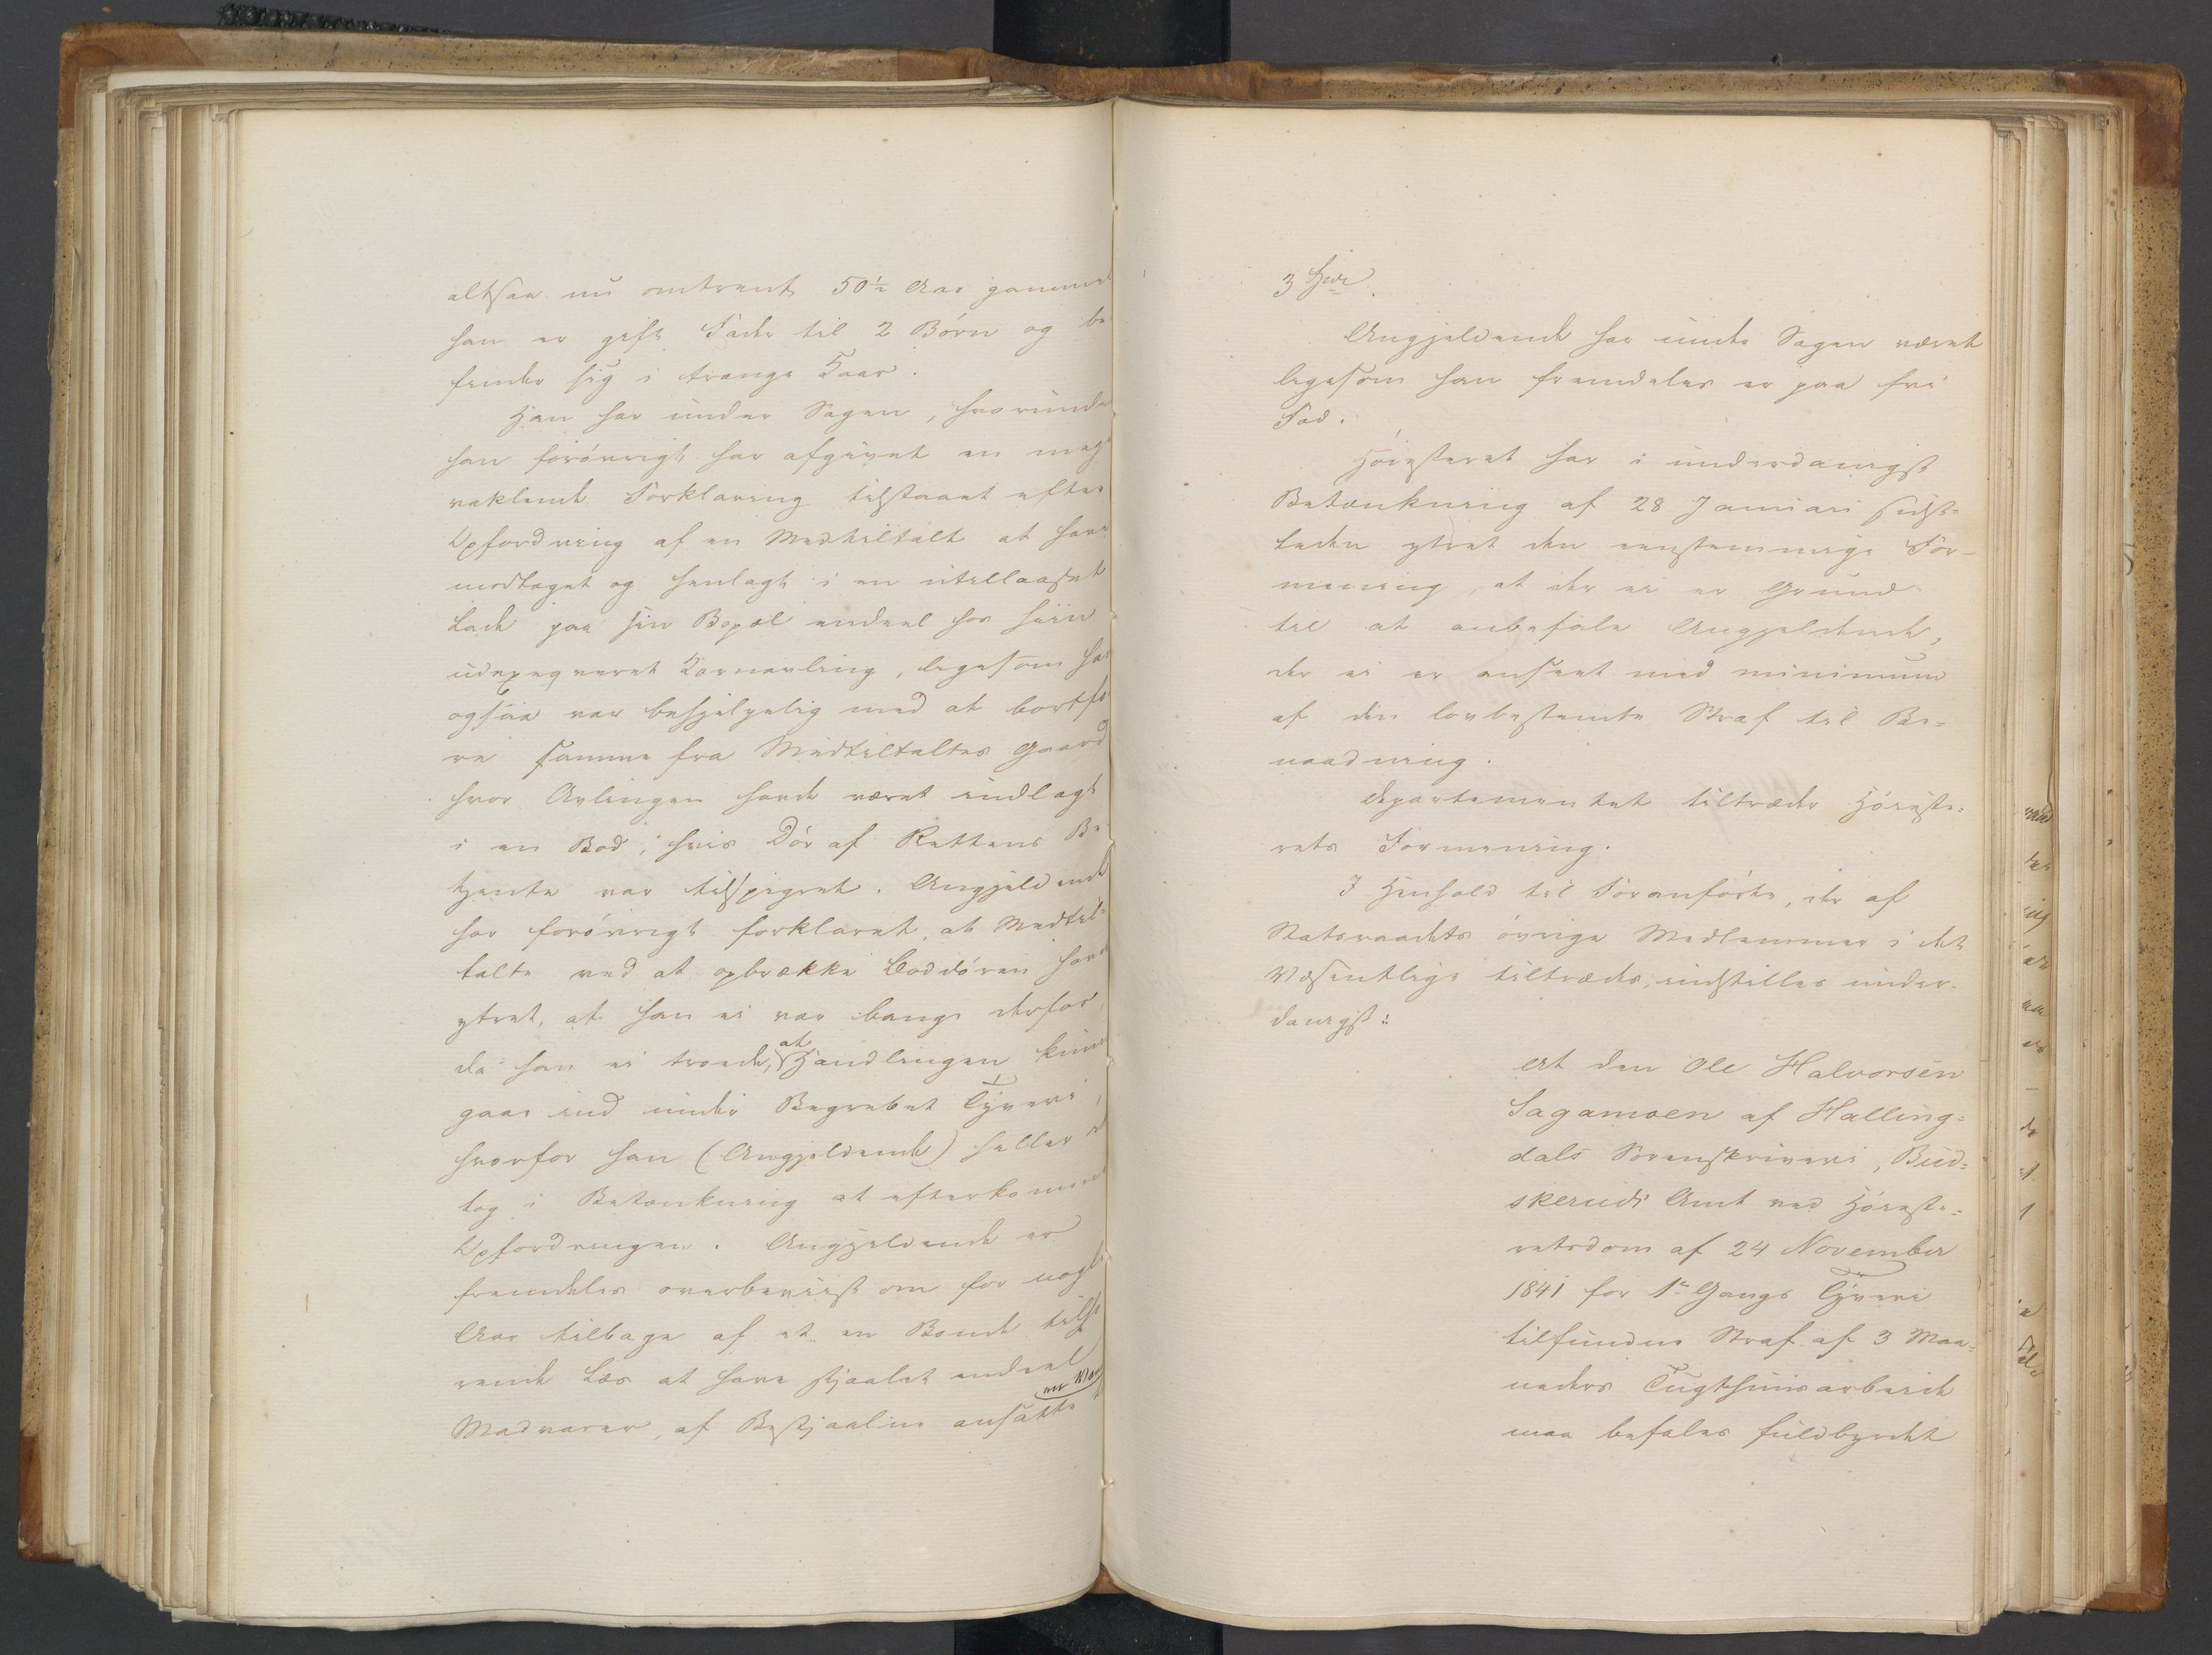 altsaa nu omtrent 50½ Aar gammel
han er gift Fader til 2 Børn og be
finder sig i trange Kaar.
Han har under Sagen, hvorunder
han forøvrigt har afgivet en meget
vaklende Forklaring tilstaaet efter
Opfordring af en Medtiltalt at have
modtaget og henlagt i en utillaaset
Lade paa sin Bopæl endeel hos Siin
udexeqveret Kornavling, ligesom han
ogsaa var behjelpelig med at bortfø
re samme fra Medtiltaltes Gaard
hvor Avlingen havde været indlagt
i en Bod, hvis Dør af Rettens Be
tjente var tilspigret. Angjeldende
har forøvrigt forklaret, at Medtil-
talte ved at opbrække Boddøren havde
ytret, at han ei var bange derfor,
da han ei troede, at Handlingen kunde
gaae ind under Begrebet Tyveri,
hvorfor han (Angjeldende) heller ei
tog i Betænkning at efterkomme
Opfordringen. Angjeldende er
fremdeles overbeviist om for nogle
Aar tilbage af et en Bonde tilhø
rende Læs at have stjaalet endeel
Madvarer, af Bestjaalne ansatte til
en Værdi
3 Spd.
Angjeldende har under Sagen været
ligesom han fremdeles er paa fri
Fod.
Høiesteret har i underdanigst
Betænkning af 28 Januari sidst-
leden ytret den eenstemmige For-
mening, at der ei er Grund
til at anbefale Angjeldende,
der ei er anseet med minimum
af den lovbestemte Straf til Be-
naadning.
Departementet tiltræder Høieste-
rets Formening.
I Henhold til Foranførte, der af
Statsraadets øvrige Medlemmer i det
Væsentlige tiltrædes, indstilles under-
danigst:
At den Ole Halvorsen
Sagamoen af Halling-
dals Sorenskriveri, Bud-
skeruds Amt ved Høieste-
retsdom af 24 November
1841 for 1ste Gangs Tyveri
tilfundne Straf af 3 Maa-
neders Tugthuusarbeide
maa befales fuldbyrdet